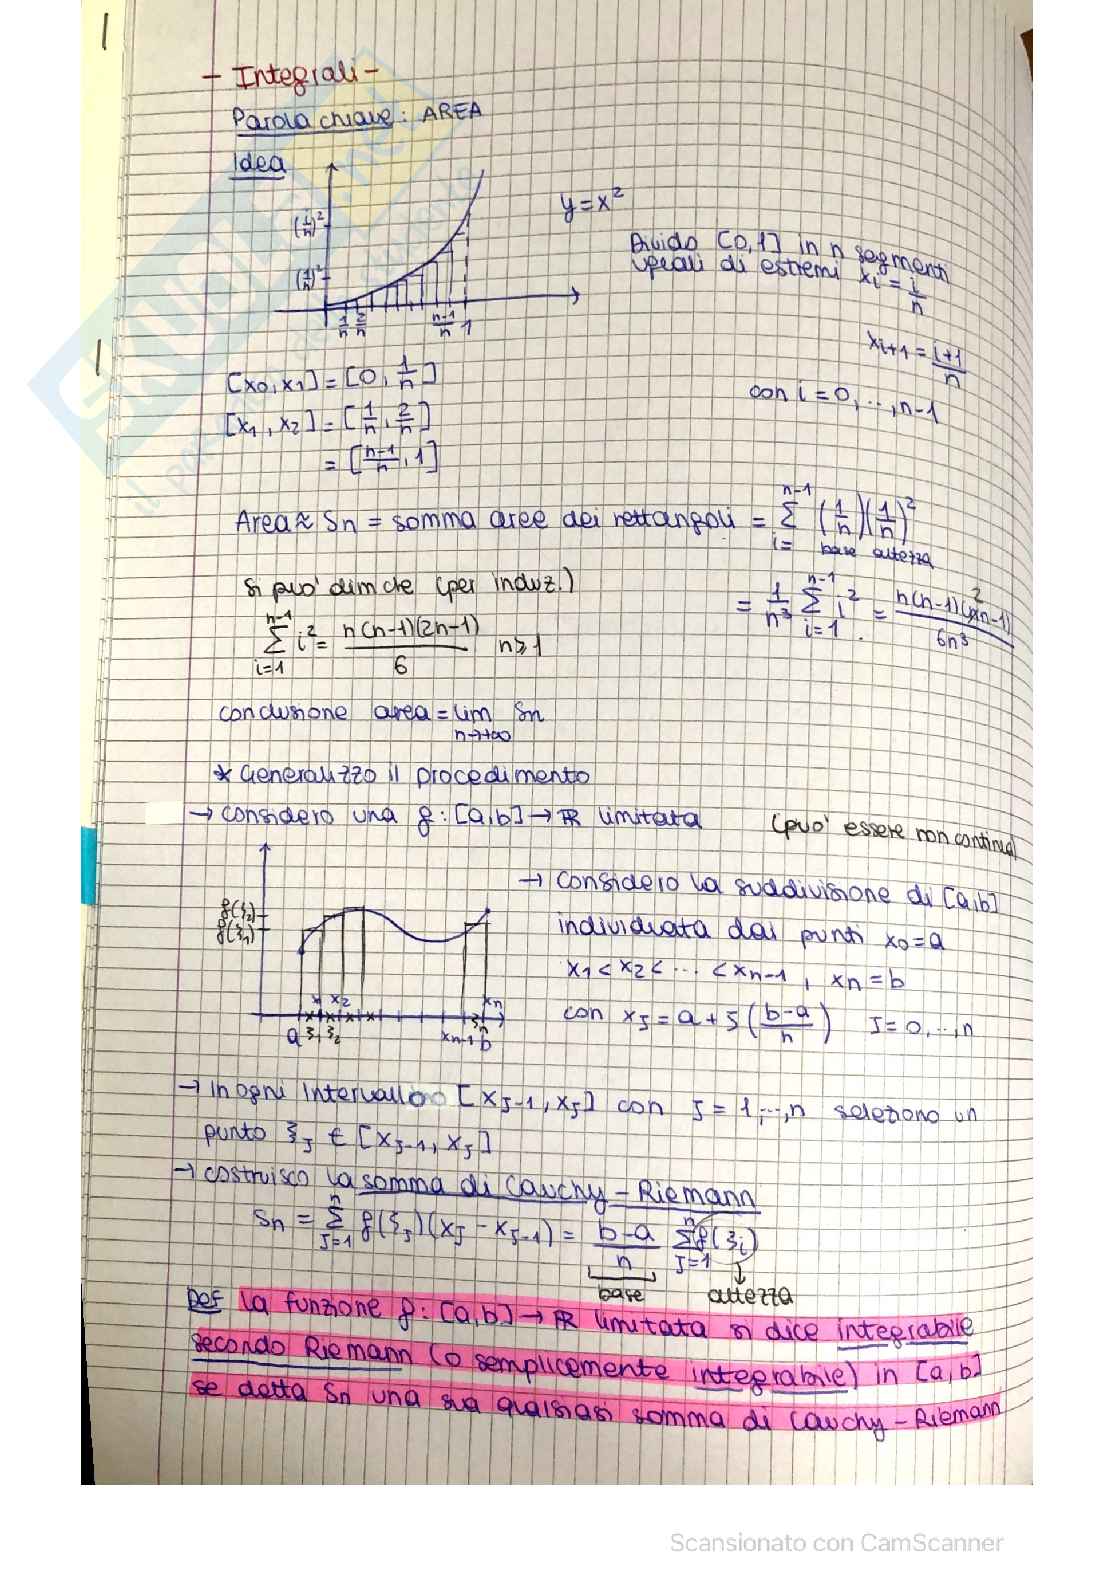 1
- Integrali -
Parola chiave: AREA
Idea
y = x²
(i/n)²
(1/n)²
1/n 2/n n-1/n 1
Divido [0,1] in n segmenti
uguali di estremi xi = i/n
xi+1 = i+1/n
con i = 0, ..., n-1
1
[x0, x1] = [0, 1/n]
[x1, x2] = [1/n, 2/n]
= [n-1/n, 1]
Area ≈ Sn = somma aree dei rettangoli = Σ i= n-1 (1/n)(1/n)²
base altezza
si puo' dim che (per induz.)
= 1/n³ Σ i=1 n-1 i² = n(n-1)(2n-1)/6n³
Σ i=1 n-1 i² = n(n-1)(2n-1)/6 n≥1
conclusione area = lim n→+∞ Sn
* Generalizzo il procedimento
→ considero una f: [a,b] → R limitata (puo' essere non continua)
f(ξ2)
f(ξ1)
x x2 xn
a ξ1 ξ2 xn-1 ξn b
→ Considero la suddivisione di [a,b]
individuata dai punti x0 = a
x1 < x2 < ... < xn-1, xn = b
con xJ = a + J (b-a/n) J = 0, ..., n
→ In ogni intervallo [xJ-1, xJ] con J = 1, ..., n seleziono un
punto ξJ ∈ [xJ-1, xJ]
→ costruisco la somma di Cauchy - Riemann
Sn = Σ J=1 n f(ξJ)(xJ - xJ-1) = b-a/n Σ J=1 n f(ξi)
base altezza
Def la funzione f: [a,b] → R limitata si dice integrabile
secondo Riemann (o semplicemente integrabile) in [a,b]
se detta Sn una sua qualsiasi somma di Cauchy - Riemann
SKUOLA.net
il portale dello studente
Scansionato con CamScanner